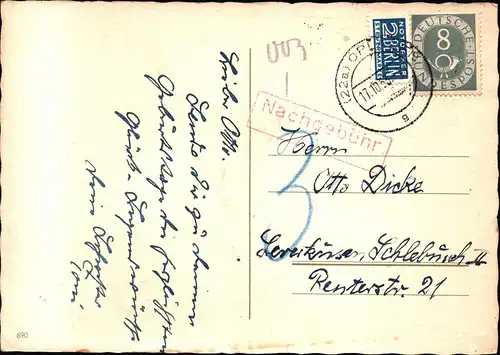 Lieber Otto.
Sende dir zu deinem
Geburtstage die herzlichsten
Glück- u. Segenswünsche
Deine Schwester
Toni
690
003
NOTOPFER
2 BERLIN
STEUERMARKE
DEUTSCHE
BUNDESPOST
8
(22a) OPL
17.10.5
a
Nachgebühr
3
Herrn
Otto Dicke
Leverkusen Schlebusch II
Renterstr. 21